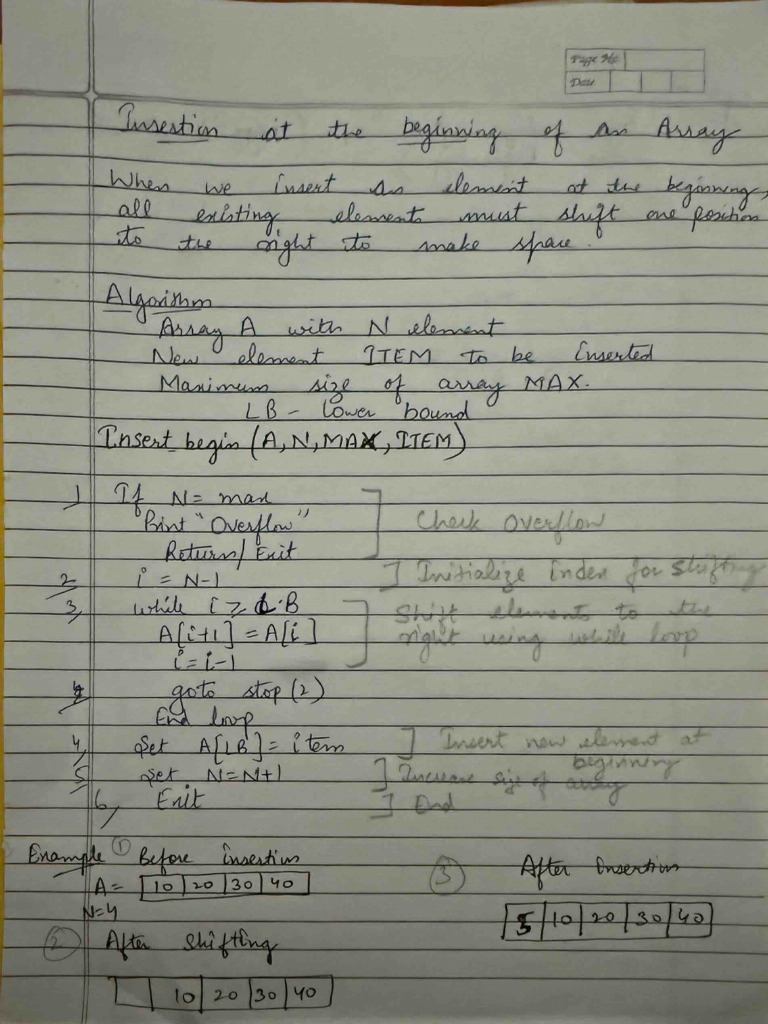 Page No.
Date
Insertion at the beginning of an Array
When we insert an element at the beginning,
all existing elements must shift one position
to the right to make space.
Algorithm
Array A with N element
New element ITEM to be inserted
Maximum size of array MAX.
LB - lower bound
Insert_begin (A, N, MAX, ITEM)
1, If N = max
Print "Overflow"
Return/ Exit
] Check Overflow
2, i = N-1 ] Initialize index for shifting
3, while i ≥ L.B
A[i+1] = A[i]
i = i-1
] Shift elements to the
right using while loop
goto stop (2)
End loop
4, Set A[LB] = item ] Insert new element at
beginning
5, Set N = N+1 ] Increase size of array
6, Exit ] End
Example ① Before insertion
A = 10 20 30 40
N=4
② After shifting
10 20 30 40
③ After Insertion
5 10 20 30 40